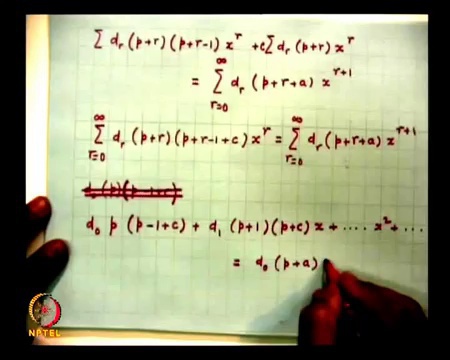 Σ d_r (p+r) (p+r-1) x^r + c Σ d_r (p+r) x^r
= Σ_{r=0}^{∞} d_r (p+r+a) x^{r+1}
Σ_{r=0}^{∞} d_r (p+r) (p+r-1+c) x^r = Σ_{r=0}^{∞} d_r (p+r+a) x^{r+1}
d_0 p (p-1+c) + d_1 (p+1) (p+c) x + .... x^2 + ...
= d_0 (p+a)
NPTEL